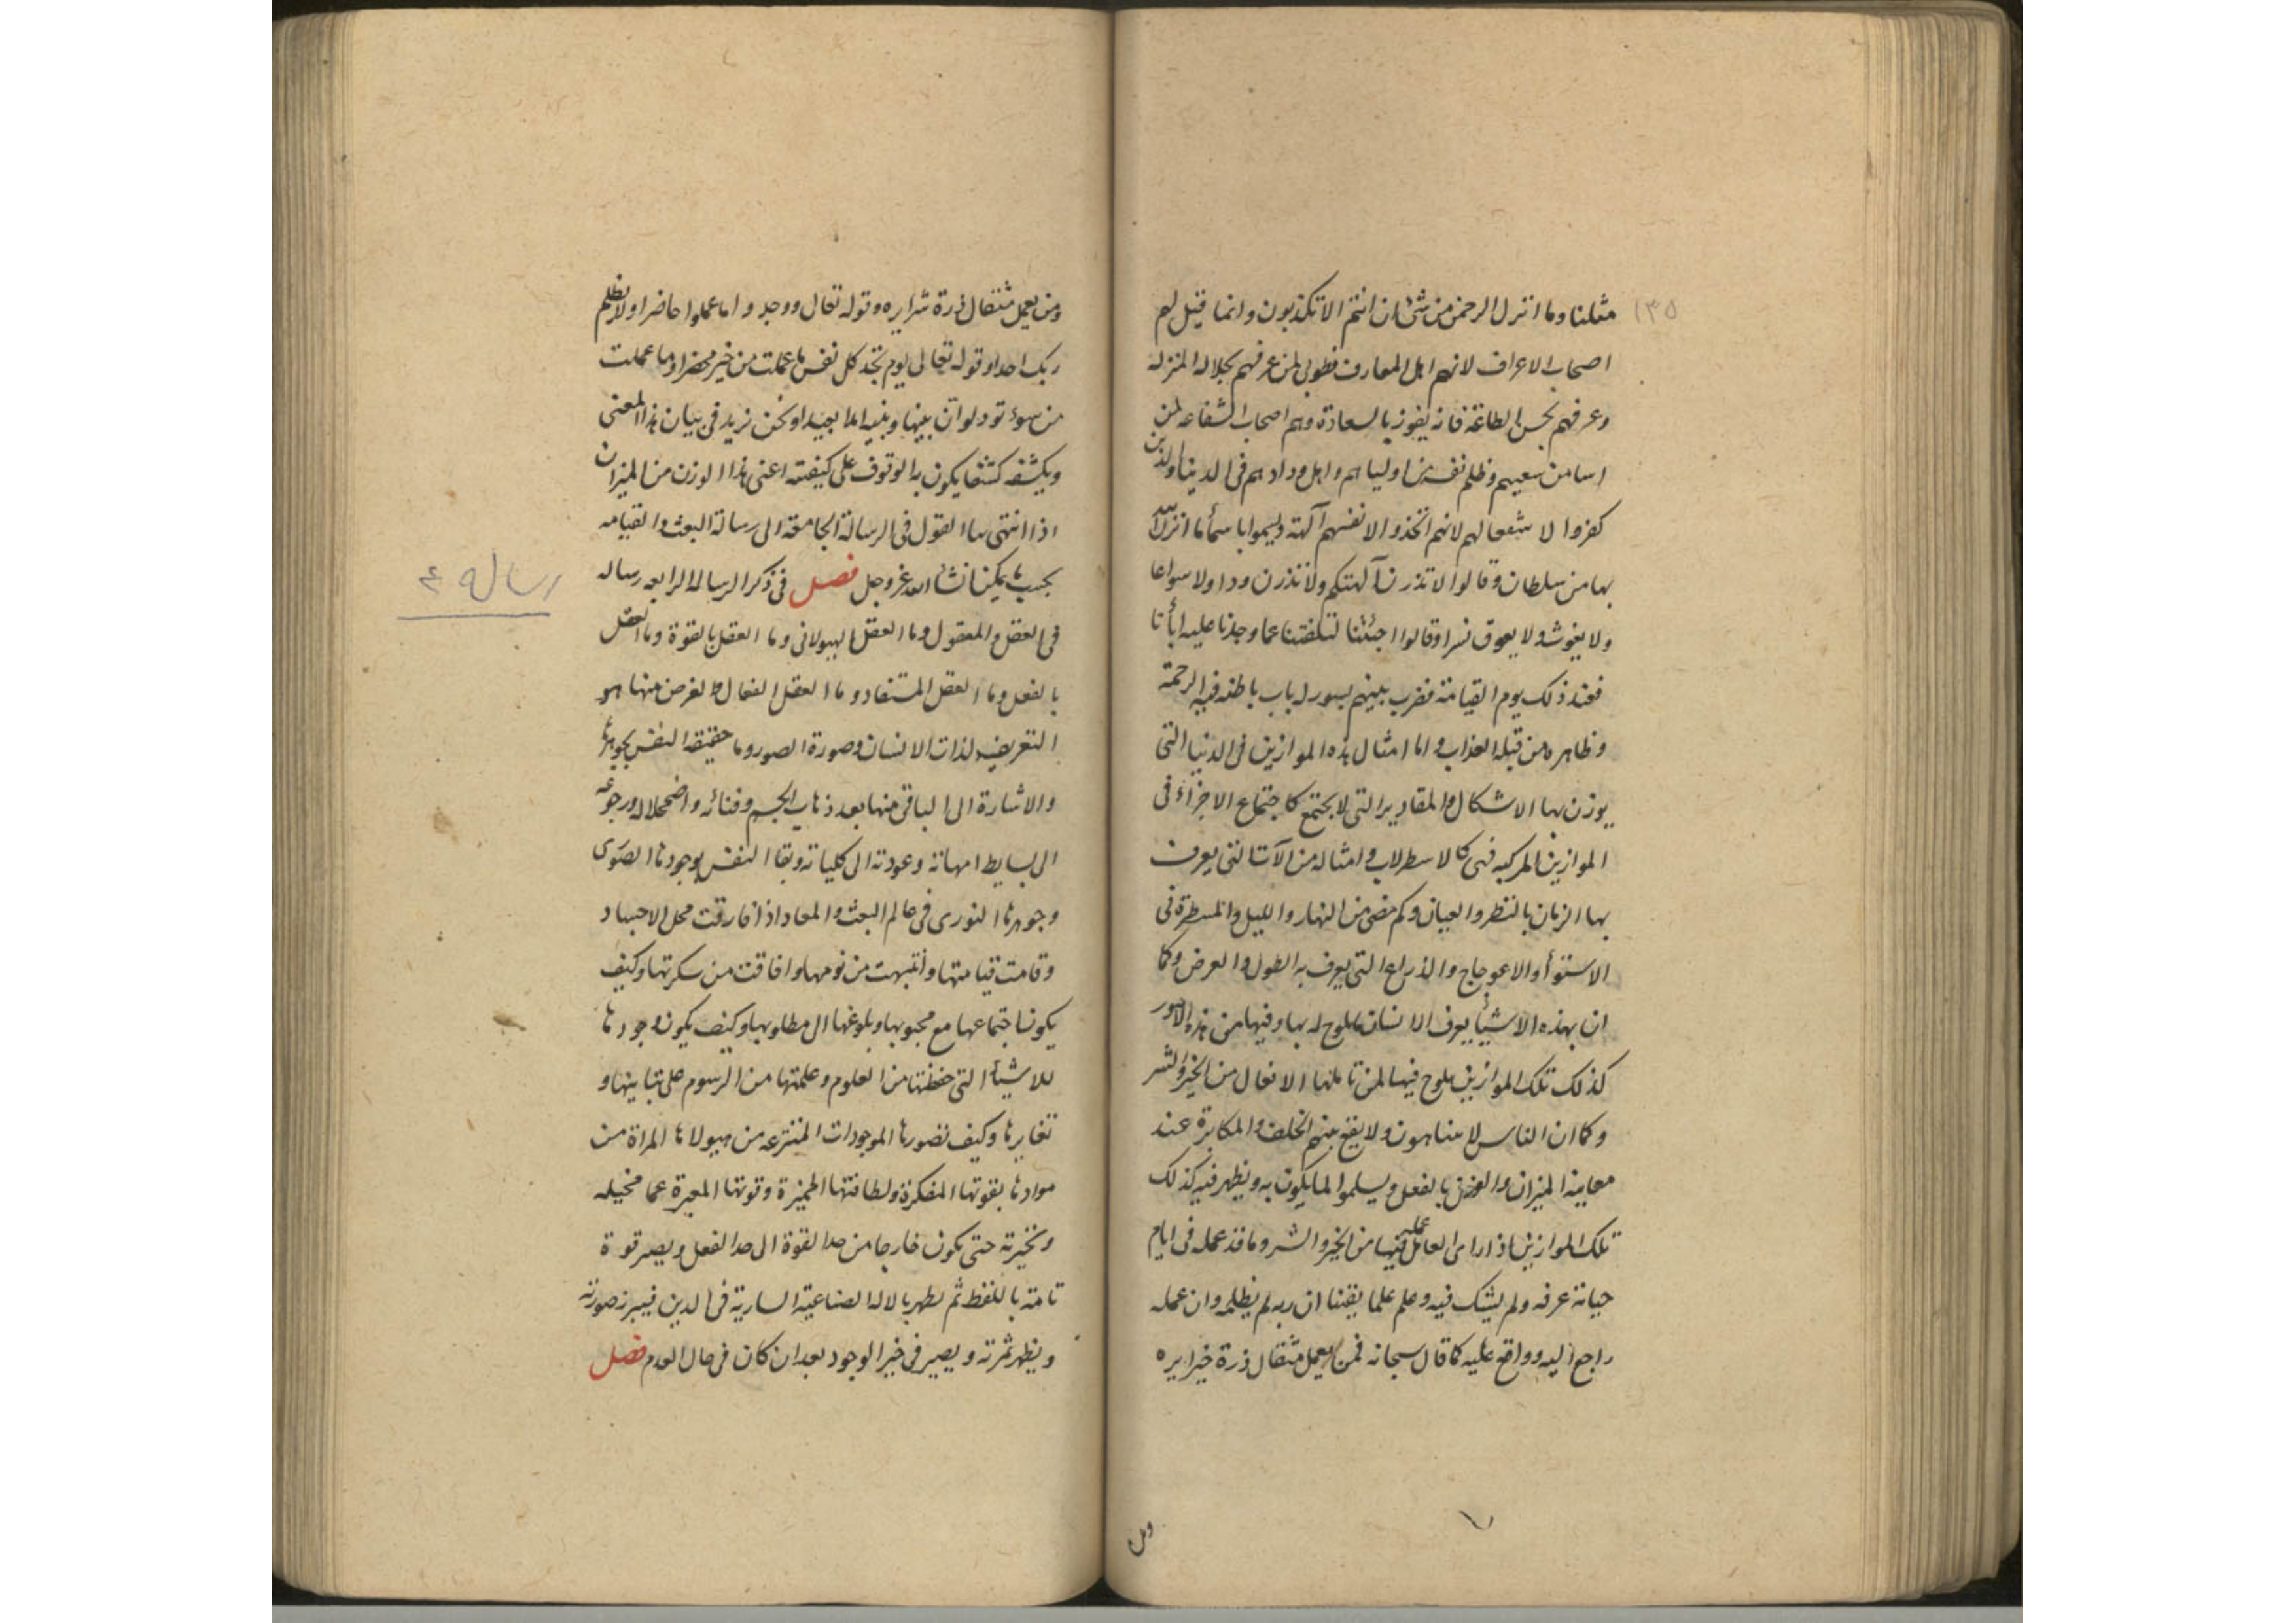 ١٣٥
مثلنا وما انزل الرحمن من شئ ان انتم الا تكذبون وانما قيل لهم
اصحاب الاعراف لانهم اهل المعارف فطوبى لمن عرفهم بجلالة المنزلة
وعرفهم بحسن الطاعة فانه يفوز بالسعادة وهم اصحاب الشفاعه لمن
اسا من شيعتهم وظلم نفسه من اوليائهم واهل ودادهم فى الدنيا والذين
كفروا لا شفعا لهم لانهم اتخذوا لانفسهم آلهة وليموا باسمأ ما انزل الله
بها من سلطان وقالوا لا تذرن آلهتكم ولا تذرن ودا ولا سواعا
ولا يغوث ولا يعوق نسرا وقالوا اجئتنا لتلفتنا عما وجدنا عليه اباأنا
فعند ذلك يوم القيامة فضرب بينهم بسور له باب باطنه فيه الرحمة
وظاهره من قبله العذاب واما امثال هذه الموازين فى الدنيا التى
يوزن بها الاشكال والمقادير التى لا تجتمع كاجتماع الاجزاء فى
الموازين المركبه فهى كالاسطرلاب وامثاله من الآلات التى يعرف
بها الزمان بالنظر والعيان وكم مضى من النهار والليل والمسطرة فى
الاستوأ والاعوجاج والذراع التى يعرف به الطول والعرض وكما
ان بهذه الاشيأ يعرف الانسان ما يلوح له بها وفيها من هذه الامور
كذلك تلك الموازين يلوح فيها لمن تأملها الافعال من الخير والشر
وكما ان الناس لا يتناهون ولا يقع بينهم الخلف والمكابرة عند
معاينة الميزان والوزن بالفعل ويسلموا لما يكون به ويظهر فيه كذلك
تلك الموازين اذا راى العامل عمله فيها من الخير والشر وما قد عمله فى ايام
حياته عرفه ولم يشك فيه وعلم علما يقينا ان ربه لم يظلمه وان عمله
راجع اليه وواقع عليه كما قال سبحانه فمن يعمل مثقال ذرة خيرا يره
ومن
ومن يعمل مثقال ذرة شرا يره وقوله تعالى ووجدوا ما عملوا حاضرا ولا يظلم
ربك احدا وقوله تعالى يوم تجد كل نفس ما عملت من خير محضرا وما عملت
من سوء تود لو ان بينها وبينه امدا بعيدا ونحن نزيد فى بيان هذا المعنى
ونكشفه كشفا يكون به الوقوف على كيفيته اعنى هذا الوزن من الميزان
اذا انتهى بنا القول فى الرسالة الجامعة الى رسالة البعث والقيامه
بحسب ما يمكننا انشأ الله عز وجل فصل فى ذكر الرساله الرابعه رساله
فى العقل والمعقول وما العقل الهيولانى وما العقل بالقوة وما العقل
بالفعل وما العقل المستفاد وما العقل الفعال والغرض منها هو
التعريف لذات الانسان وصورة الصور وما حقيقة النفس بجوهرها
والاشارة الى الباقى منها بعد ذهاب الجسم وفنائه واضمحلاله ورجوعه
الى بسايط امهاته وعودته الى كلياته وبقا النفس بوجودها الصورى
وجوهرها النورى فى عالم البعث والمعاد اذا فارقت محل الاجساد
وقامت قيامتها وانتبهت من نومها وافاقت من سكرتها وكيف
يكون اجتماعها مع محبوبها وبلوغها الى مطلوبها وكيف يكون وجودها
للاشيأ التى حفظتها من العلوم وعلمتها من الرسوم على تباينها و
تغايرها وكيف تصورها الموجودات المنتزعه من هيولاها المراة من
موادها بقوتها المفكرة ولطافتها المميزة وقوتها المعبرة عما تخيله
وتخبرته حتى يكون خارجا من حد القوة الى حد الفعل ويصير قوة
تامة باللفظ ثم يظهر بالاله الصناعية السارية فى اليدين فيبرز صورته
ويظهر ثمرته ويصير فى خير الوجود بعد ان كان فى حال العدم فصل
رساله ٤